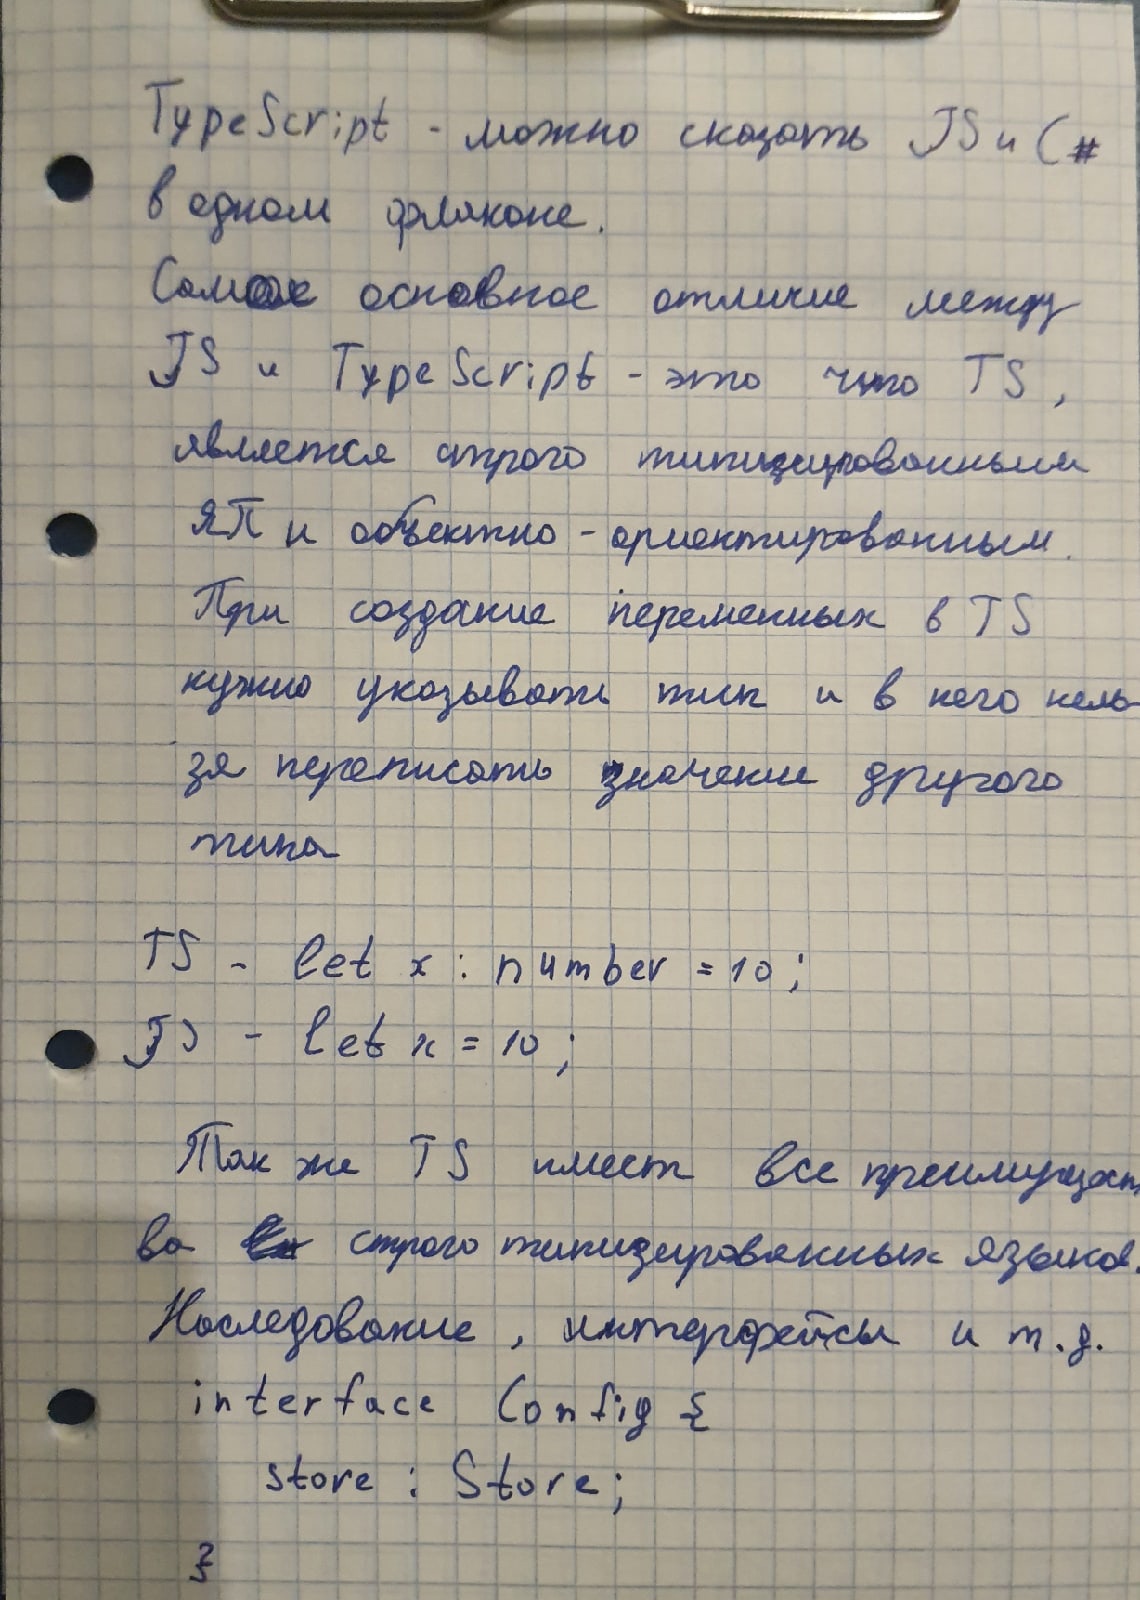 TypeScript - можно сказать JS и C#
в одном флаконе.
Самое основное отличие между
JS и TypeScript - это что TS,
является строго типизированным
ЯП и объектно-ориентированным.
При создание переменных в TS
нужно указывать тип и в него нель-
зя переписать значение другого
типа
TS - let x : number = 10;
JS - let x = 10;
Так же TS имеет все преимущест
ва строго типизированных языков.
Наследование, интерфейсы и т.д.
interface Config {
store : Store;
}